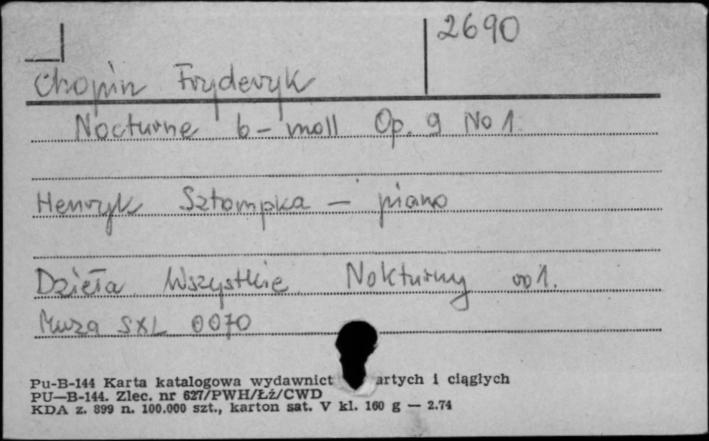 2690
Chopin Fryderyk
Nocturne b-moll Op. 9 No 1.
Henryk Sztompka - piano
Dzieła Wszystkie Nokturny 1.
Muza SXL 0070
Pu-B-144 Karta katalogowa wydawnict artych i ciągłych
PU—B-144. Zlec. nr 627/PWH/Łż/CWD
KDA z. 899 n. 100.000 szt., karton sat. V kl. 160 g — 2.74